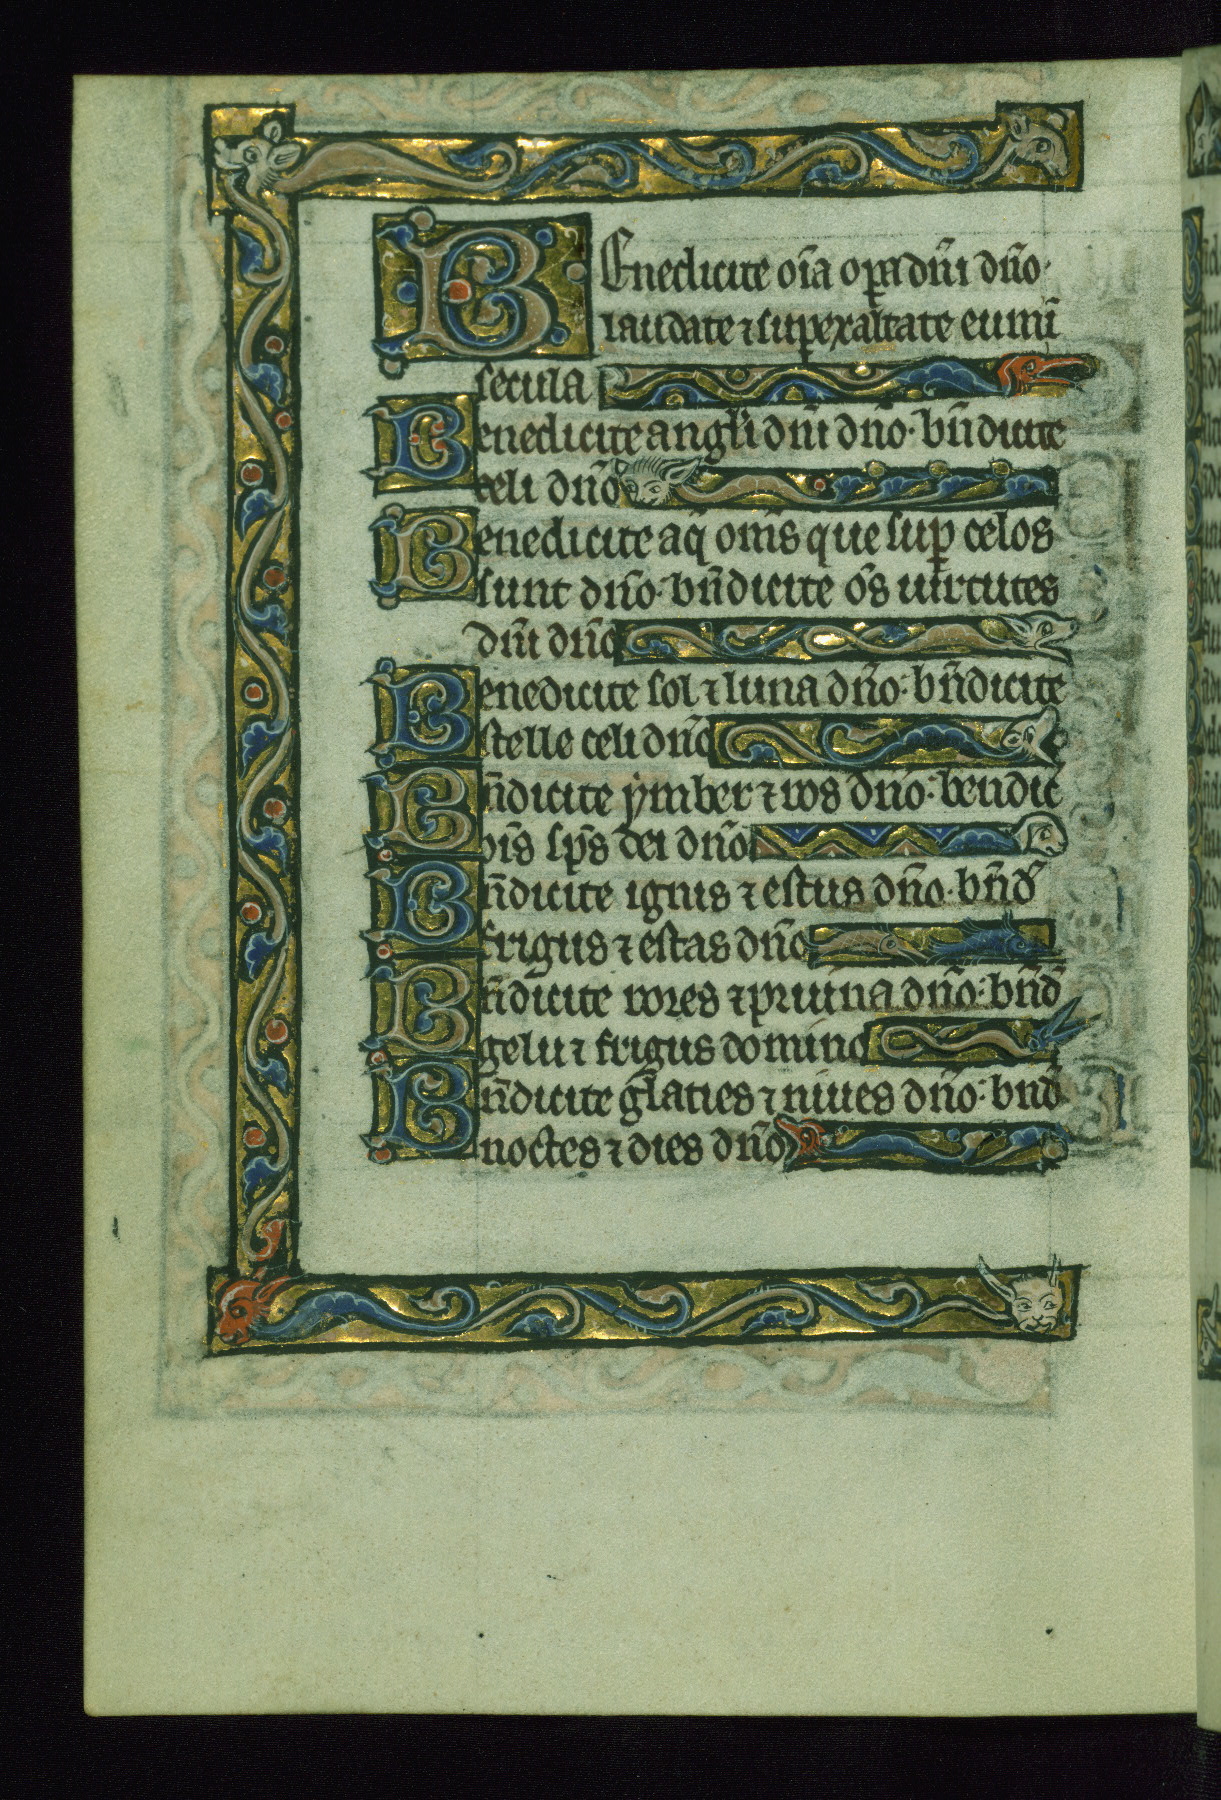 BEnedicite oīa oꝑa dn̄i dn̄o·
laudate ⁊ suꝑexaltate eum ī
secula
Benedicite angl̄i dn̄i dn̄o· bn̄dicite
celi dn̄o
Benedicite aq̄ om̄s que suꝑ celos
sunt dn̄o· bn̄dicite om̄s uirtutes
dn̄i dn̄o
Benedicite sol ⁊ luna dn̄o· bn̄dicite
stelle celi dn̄o
Bn̄dicite ymber ⁊ ros dn̄o· bendic̄
om̄s sp̄s dei dn̄o
Bn̄dicite ignis ⁊ estus dn̄o· bn̄d
frigus ⁊ estas dn̄o
Bn̄dicite rores ⁊ pruina dn̄o· bn̄d
gelu ⁊ frigus domino
Bn̄dicite glacies ⁊ niues dn̄o· bn̄d
noctes ⁊ dies dn̄o